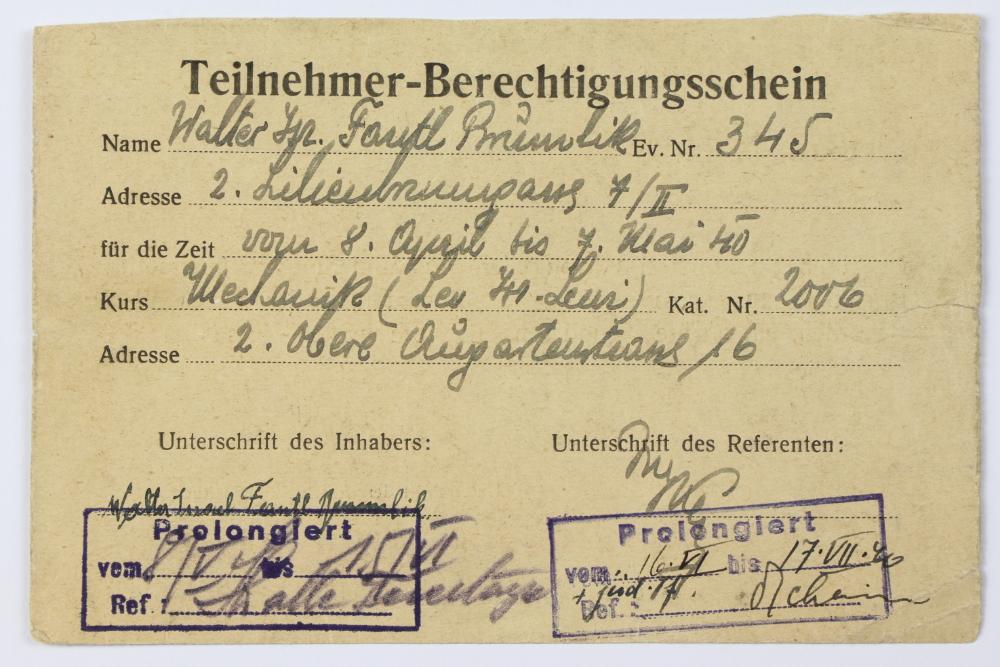 Teilnehmer-Berechtigungsschein
Name Walter Isr. Fantl Brumlik Ev. Nr. 345
Adresse 2. Lilienbrunngasse 7/II
für die Zeit vom 8. April bis 7. Mai 40
Kurs Mechanik (Lev Isr. Levi) Kat. Nr. 2006
Adresse 2. Obere Augartenstrasse 16
Unterschrift des Inhabers: Unterschrift des Referenten:
Walter Israel Fantl Brumlik
Prolongiert
vom 8/V bis 15/VI
Ref.:
Prolongiert
vom 16. VI bis 17. VII. 40
Ref.: